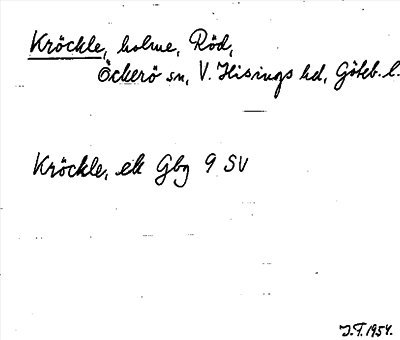 Kröckle, holme, Röd,
Öckerö sn, V. Hisings hd, Göteb. l.
Kröckle, ek Gbg 9 SV
J.T. 1954.